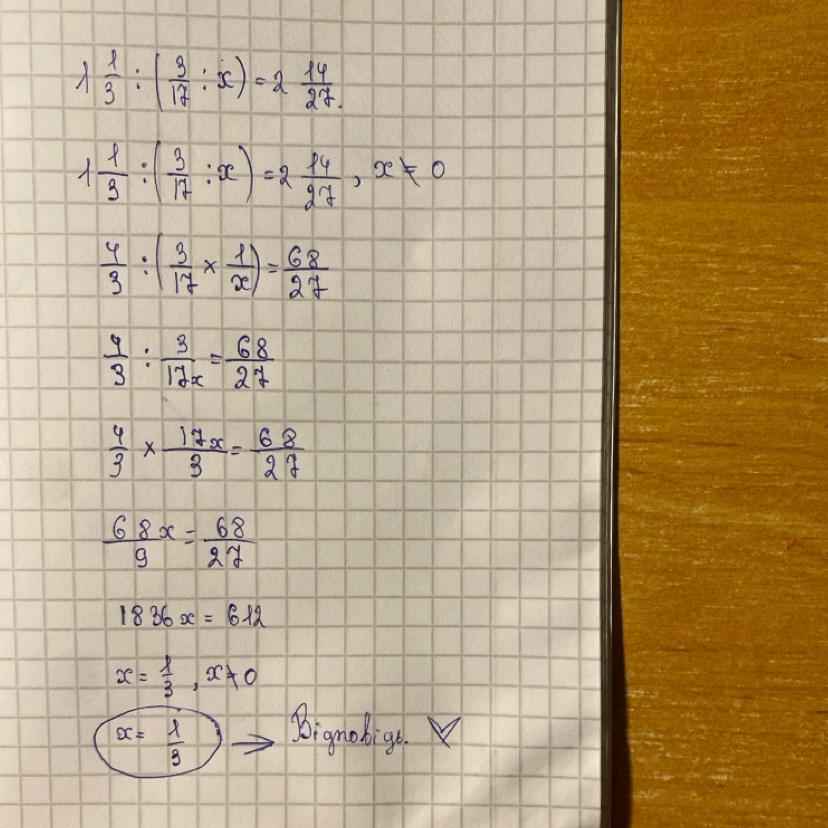 1 1/3 : (3/17 : x) = 2 14/27.
1 1/3 : (3/17 : x) = 2 14/27, x ≠ 0
4/3 : (3/17 × 1/x) = 68/27
4/3 : 3/17x = 68/27
4/3 × 17x/3 = 68/27
68x/9 = 68/27
1836x = 612
x = 1/3, x ≠ 0
x = 1/3 → Відповідь.